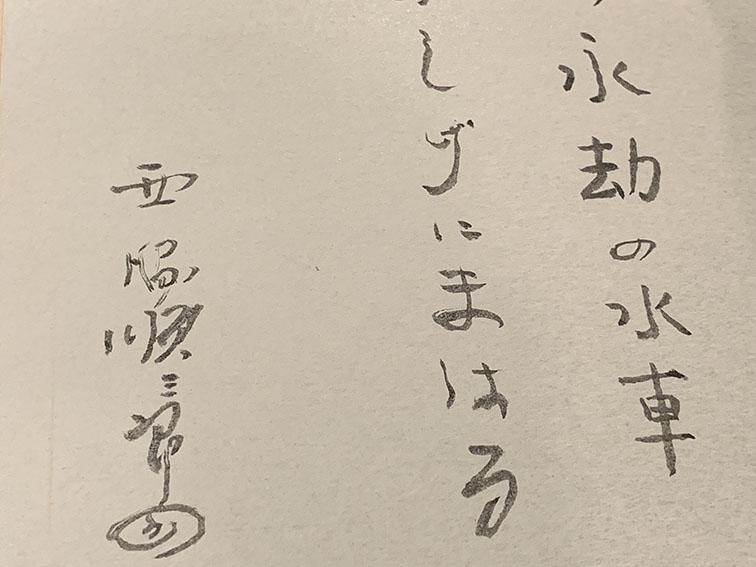 永劫の水車
しげにまはる
西脇順三郎